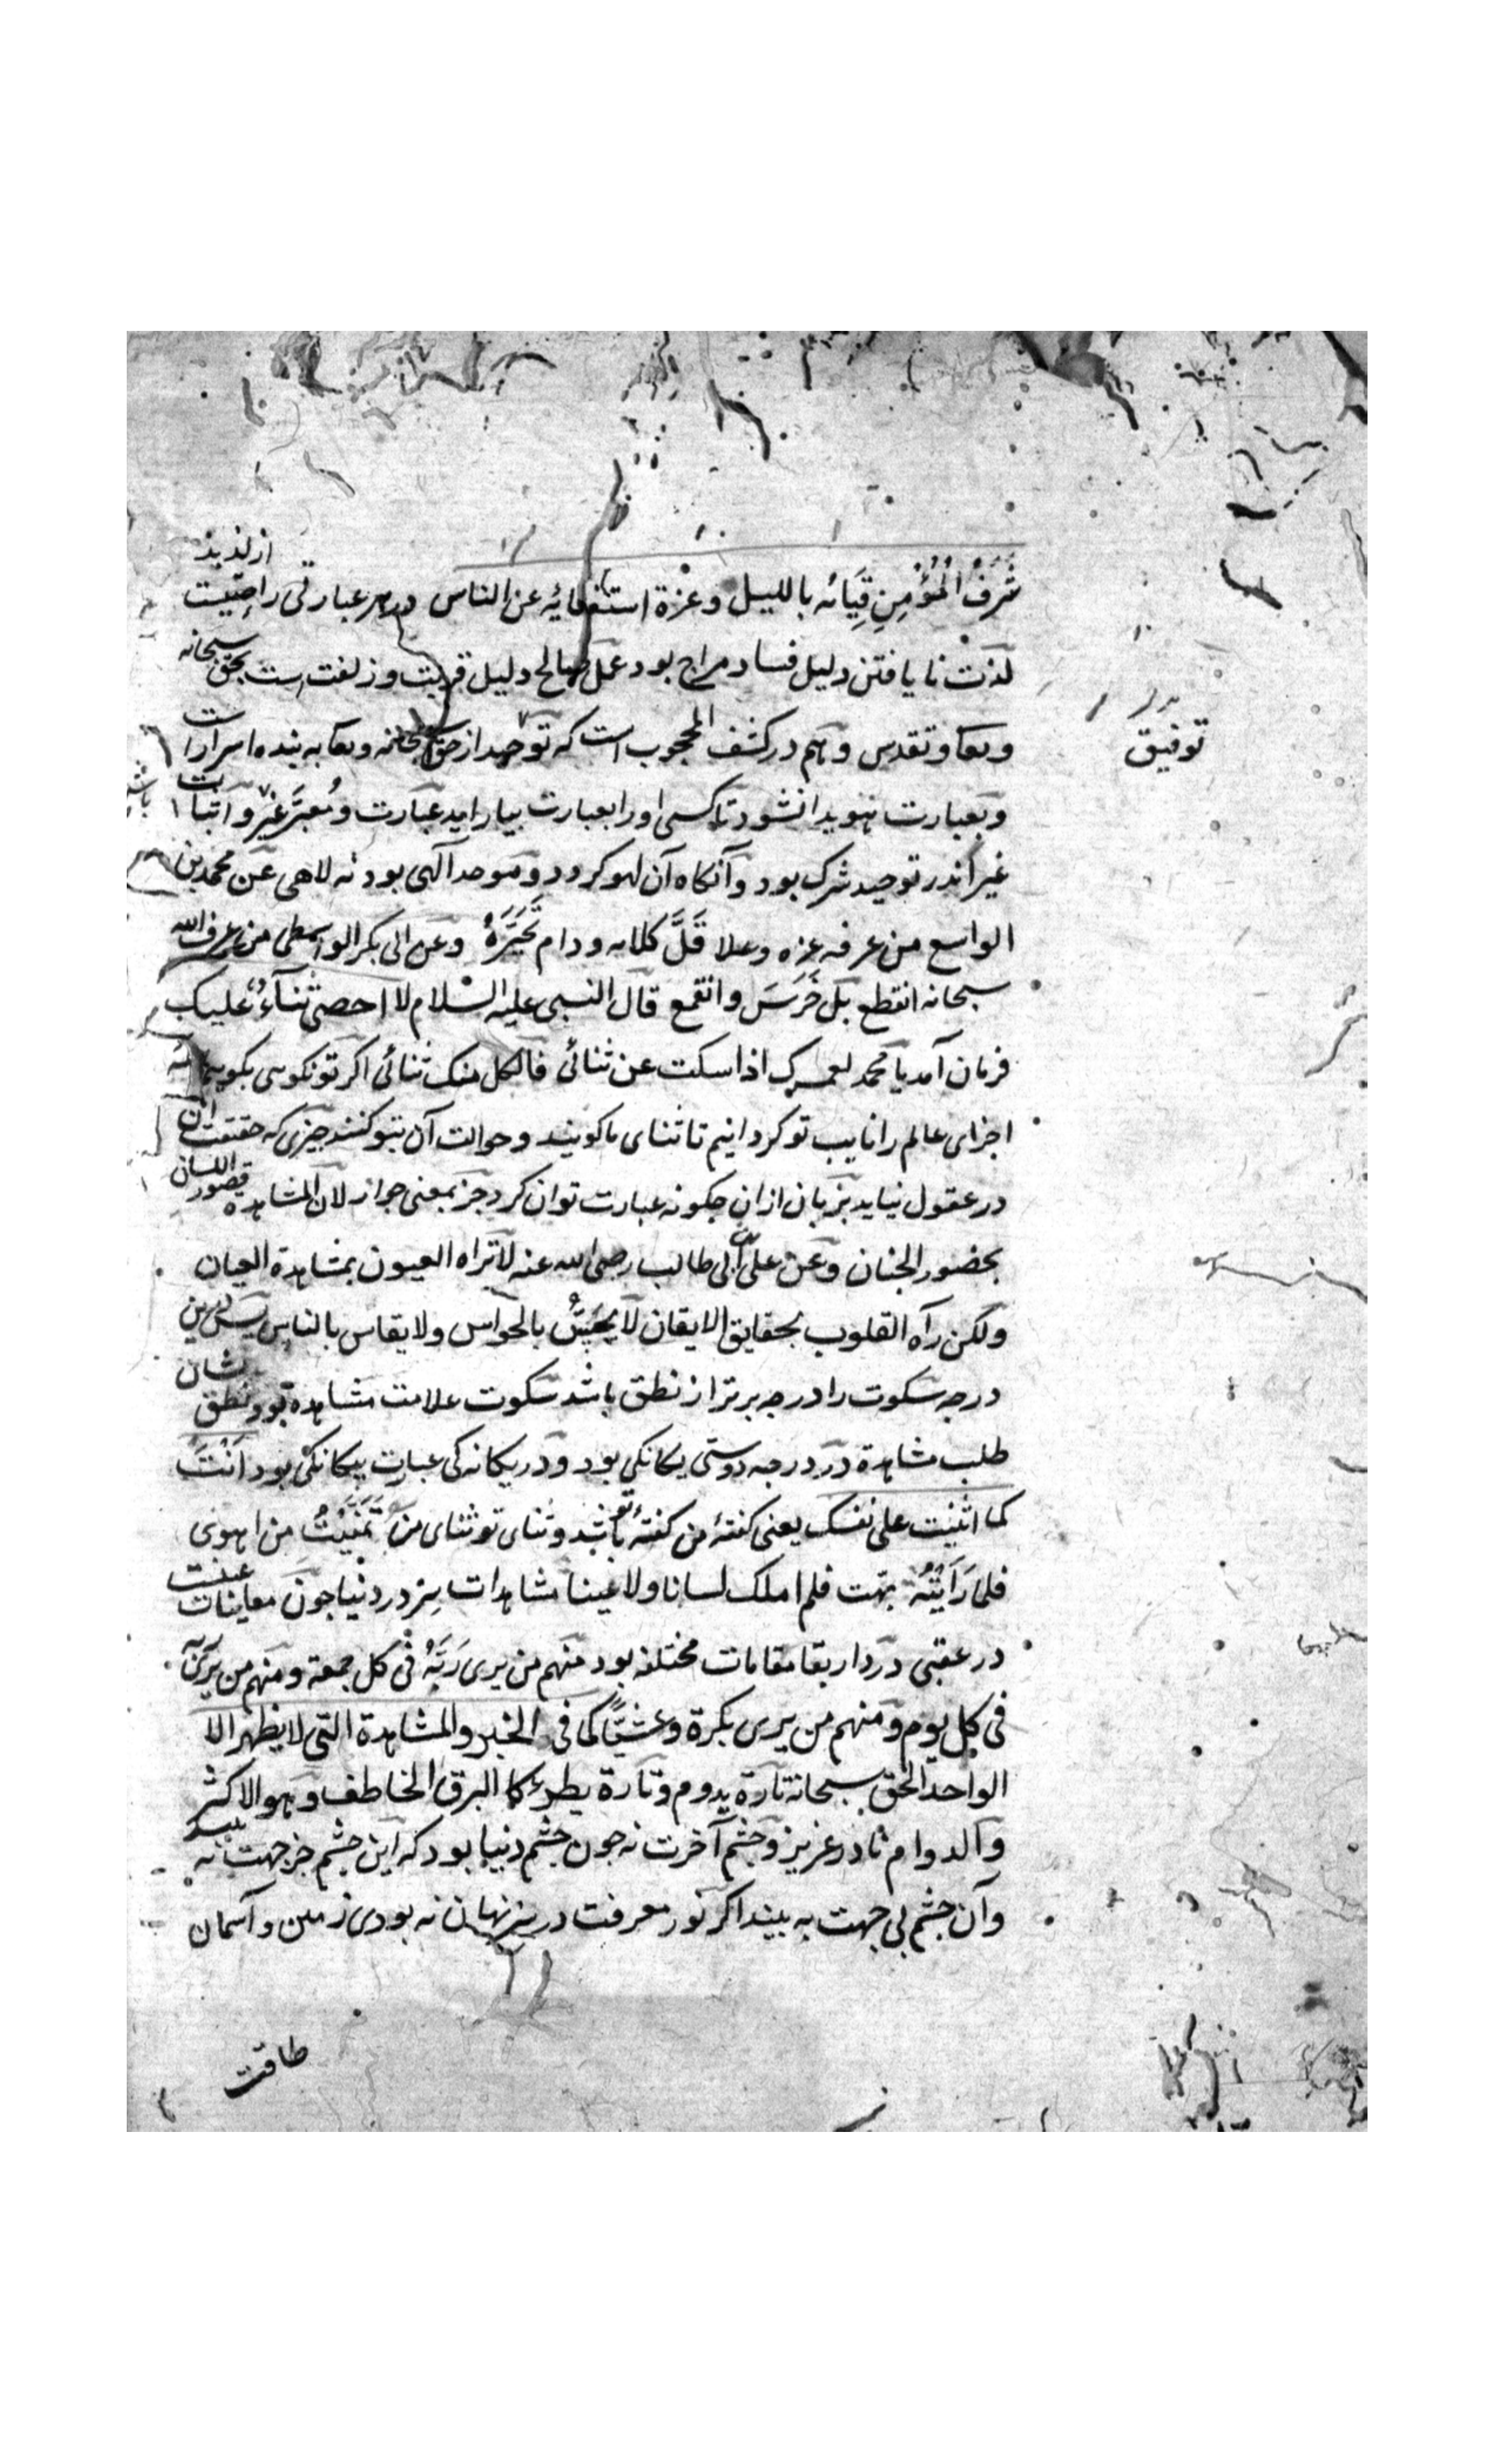 شَرَفُ الْمُؤْمِنِ قِيَامُه بالليل وعزة استغنائه عن الناس در هر عبارتی راحتیست از لذیذ
لذت نا یافتن دلیل فساد مزاج بود عمل صالح دلیل قربت و زلفت است بحق سبحانه
وتعا وتقدس وهم در کشف المحجوب است که توحید از حق سبحانه وتعا به بنده اسرار است
وبعبارت هویدا نشود تا کسی او را بعبارت بیاراید عبارت ومُعبَّر غیر و اثبات
غیر اندر توحید شرک بود وآنکاه آن لهو کردد وموحد آلهی بود نه لاهی عن محمد بن
الواسع من عرفه عزه وعلا قَلَّ کلامه ودام تَحَیُّرُهُ وعن ابی بکر الواسطی من عرف الله
سبحانه انقطع بل خَرَسَ وانقمع قال النبی علیه السلام لا احصی ثناءً علیک
فرمان آمد یا محمد لعمرک اذا سکت عن ثنائی فالکل منک ثنائی اکر تو نکوئی بکوییم همه
اجزای عالم را نایب تو کردانیم تا ثنای ما کویند وحوالت آن بتو کنند چیزی که حقیقت آن
در عقول نیاید بزبان ازان چکونه عبارت توان کرد جز بمعنی جواز لان المشاهده قصور اللسان
بحضور الجنان وعن علی بن ابی طالب رضی الله عنه لا تراه العیون بمشاهدة العیان
ولکن رآه القلوب بحقایق الایقان لا یُحَسُّ بالحواس ولا یقاس بالناس پس درین
درجه سکوت را درجه برتر از نطق باشد سکوت علامت مشاهده بود ونطق نشان
طلب مشاهدة در درجه دوستی یکانکی بود ودر یکانه کی عبارت بیکانکی بود اَنْتَ
کما اثنیت علی نفسک یعنی کفتهٔ من کفتهٔ تو باشد وثنای تو ثنای من تَمَنَّیْتُ من اهوی
فلما رَاَیْتُهُ بهت فلم املک لسانا ولا عینا مشاهدات سِر در دنیا چون معاینات عینست
در عقبی در دار بقا مقامات مختلفه بود منهم من یری رَبَّهُ فی کل جمعة ومنهم من یری ربه
فی کل یوم ومنهم من یری بکرة وعشیًّا کما فی الخبر والمشاهدة التی لا یظهر الا
الواحد الحق سبحانه تارة یدوم وتارة یطرء کا البرق الخاطف وهو الاکثر
والدوام نادر عزیز وچشم آخرت نه چون چشم دنیا بود که این چشم جز جهت نه بیند
وآن چشم بی جهت به بیند اکر نور معرفت در سِر نهان نه بودی زمین وآسمان
طاقت
توفیق